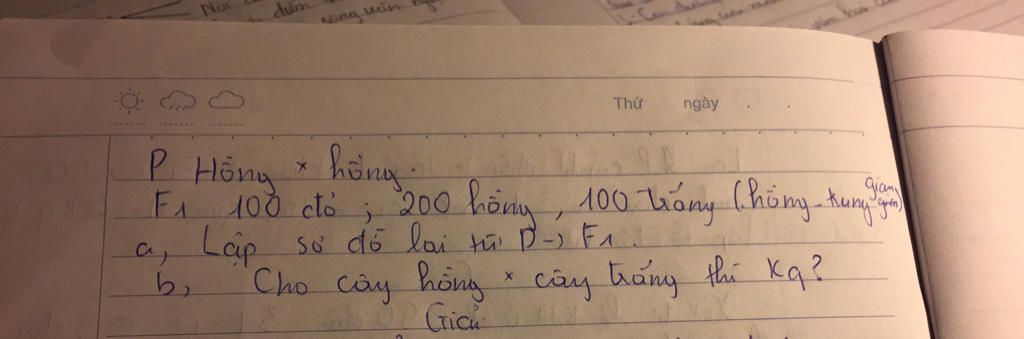 Thứ ngày
P Hồng × hồng.
F1 100 đỏ ; 200 hồng, 100 trắng (hồng - trung gian)
a, Lập sơ đồ lai từ P → F1.
b, Cho cây hồng × cây trắng thì Kq?
Giải